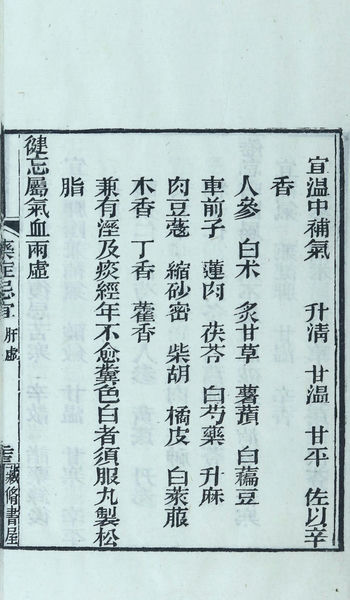 宜溫中補氣　升清　甘溫　甘平　佐以辛
香
人參　白朮　炙甘草　薯蕷　白藊豆
車前子　蓮肉　茯苓　白芍藥　升麻
肉豆蔻　縮砂密　柴胡　橘皮　白萊菔
木香　丁香　藿香
兼有溼及痰經年不愈糞色白者須服九製松
脂
健忘屬氣血兩虛
藥症忌宜　肝虛
藏脩書屋